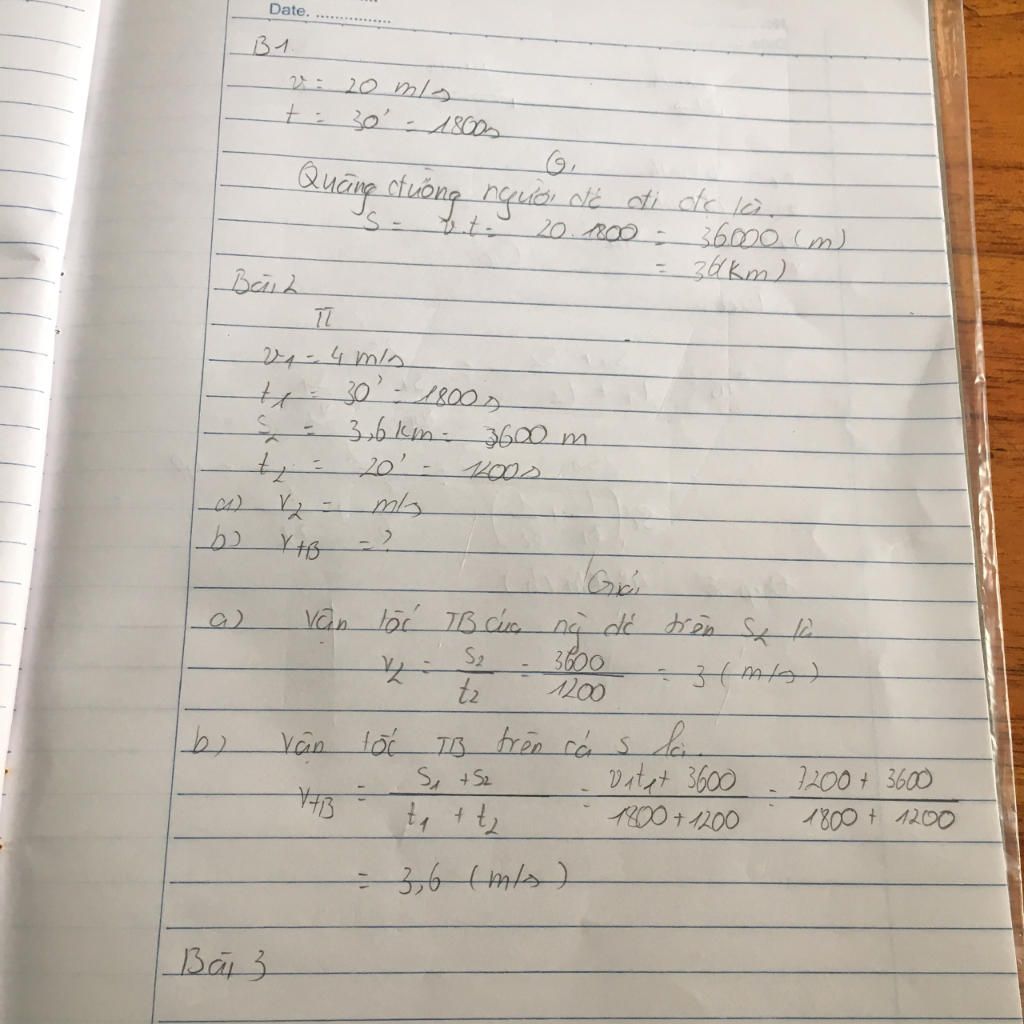 Date. ................
B1.
v = 20 m/s
t = 30' = 1800s
G,
Quãng đường người đó đi đc là.
S = v.t = 20.1800 = 36000 (m)
= 36(km)
Bài 2
TT
v1 = 4 m/s
t1 = 30' = 1800s
S2 = 3,6 km = 3600 m
t2 = 20' = 1200s
a) v2 = m/s
b) vtB = ?
Giải
a) Vận tốc TB của ng đó trên S2 là
v2 = S2/t2 = 3600/1200 = 3 (m/s)
b) Vận tốc TB trên cả S là.
vtB = S1 + S2/t1 + t2 = v1t1 + 3600/1800 + 1200 = 7200 + 3600/1800 + 1200
= 3,6 (m/s)
Bài 3